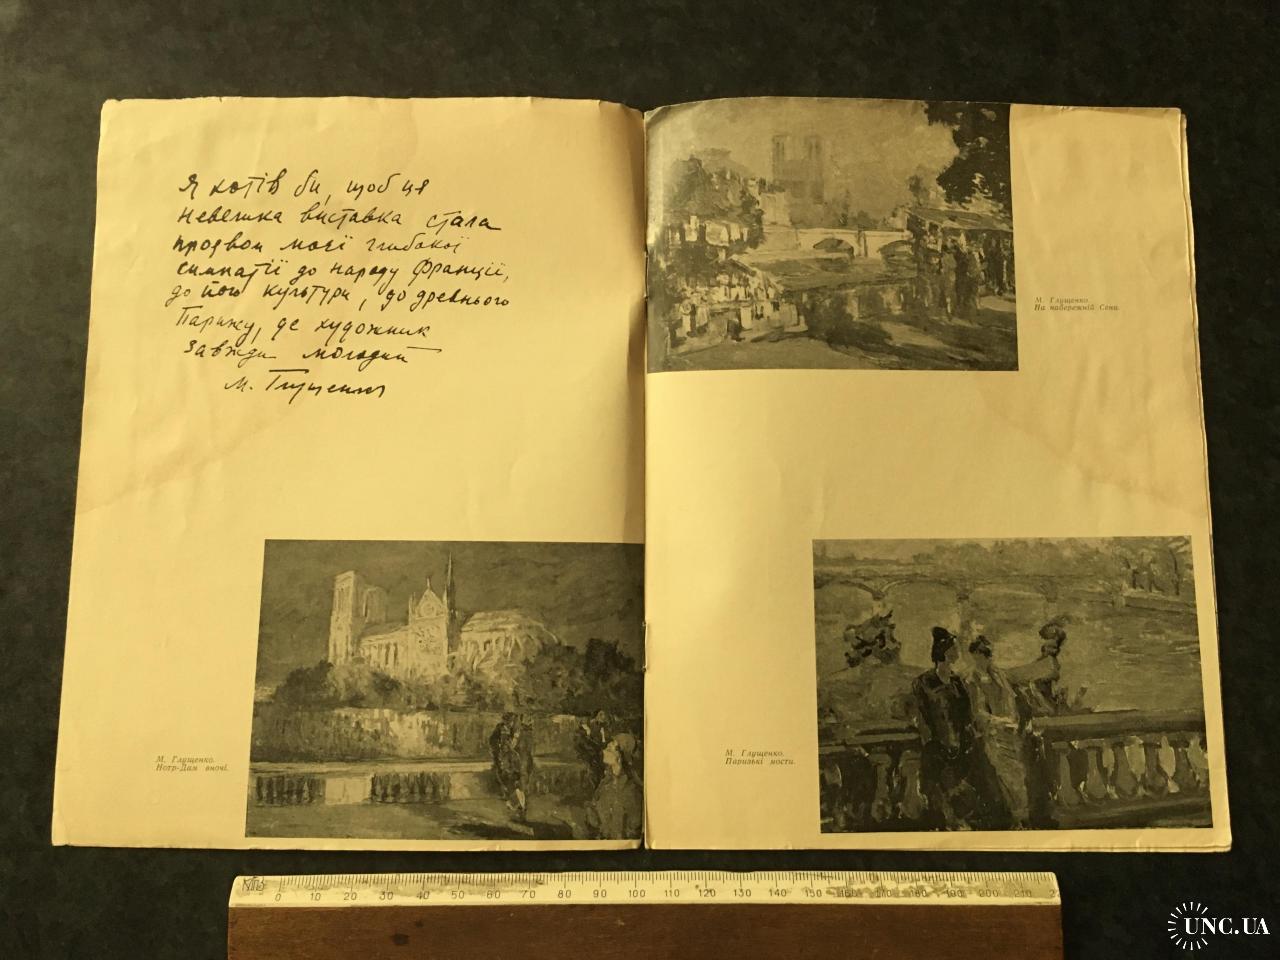 Я хотів би, щоб ця
невелика виставка стала
проявом моєї глибокої
симпатії до народу Франції,
до його культури, до древнього
Парижу, де художник
завжди молодий
М. Глущенко
М. Глущенко.
На набережній Сени.
М. Глущенко.
Нотр-Дам вночі.
М. Глущенко.
Паризькі мости.
0 10 20 30 40 50 60 70 80 90 100 110 120 130 140 150 160 170 180 190 200 210 2
UNC.UA